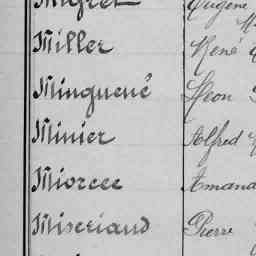 Migret Eugène
Miller René
Mingueneé Léon
Minier Alfred
Miorcec Amand
Misériaud Pierre